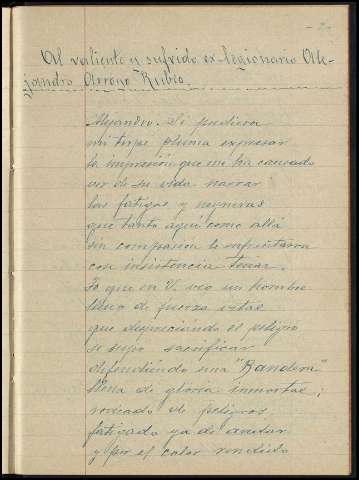 Al valiente y sufrido ex-legionario Ale-
jandro Arroyo Rubio.
Alejandro: Si pudiera
mi torpe pluma expresar
la impresión que me ha causado
ver de su vida narrar
las fatigas y
que tanto aquí como allá
sin compasión le
con insistencia tenaz.
Yo que en V. veo un hombre
lleno de fuerza vital
que despreciando el peligro
se supo sacrificar
defendiendo una "Bandera"
llena de gloria inmortal;
rodeado de peligros
fatigado ya de andar
y por el calor rendido